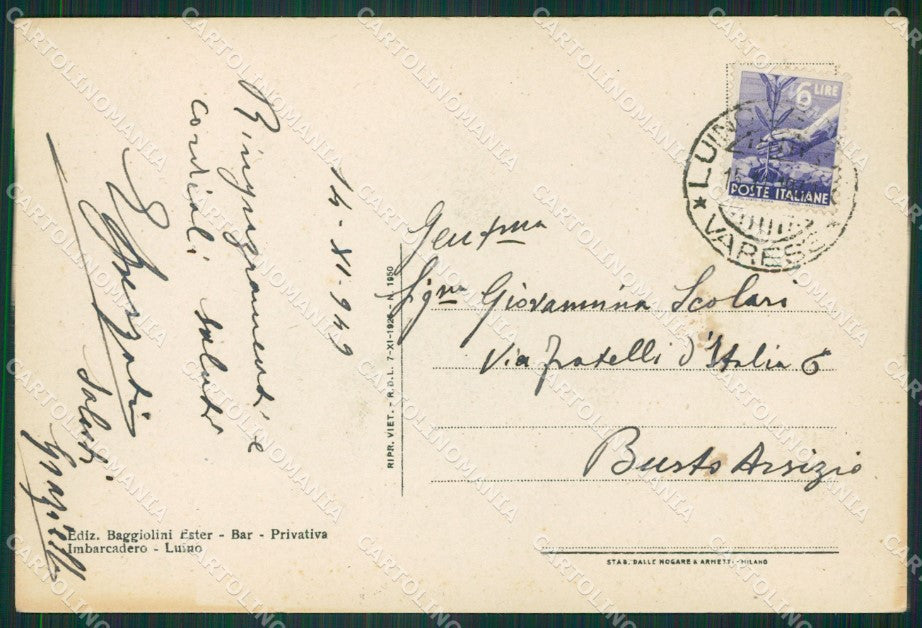 14-XI-949
Ringraziamenti e
cordiali saluti
Saluti
Graziella
Gent.ma
Sig.na Giovannina Scolari
Via fratelli d'Italia 6
Busto Arsizio
6 LIRE
POSTE ITALIANE
LUINO
VARESE
RIPR. VIET. - R.D.L. 7-XI-1925 - N. 1950
Ediz. Baggiolini Ester - Bar - Privativa
Imbarcadero - Luino
STAB. DALLE NOGARE & ARMETTI - MILANO
CARTOLINOMANIA